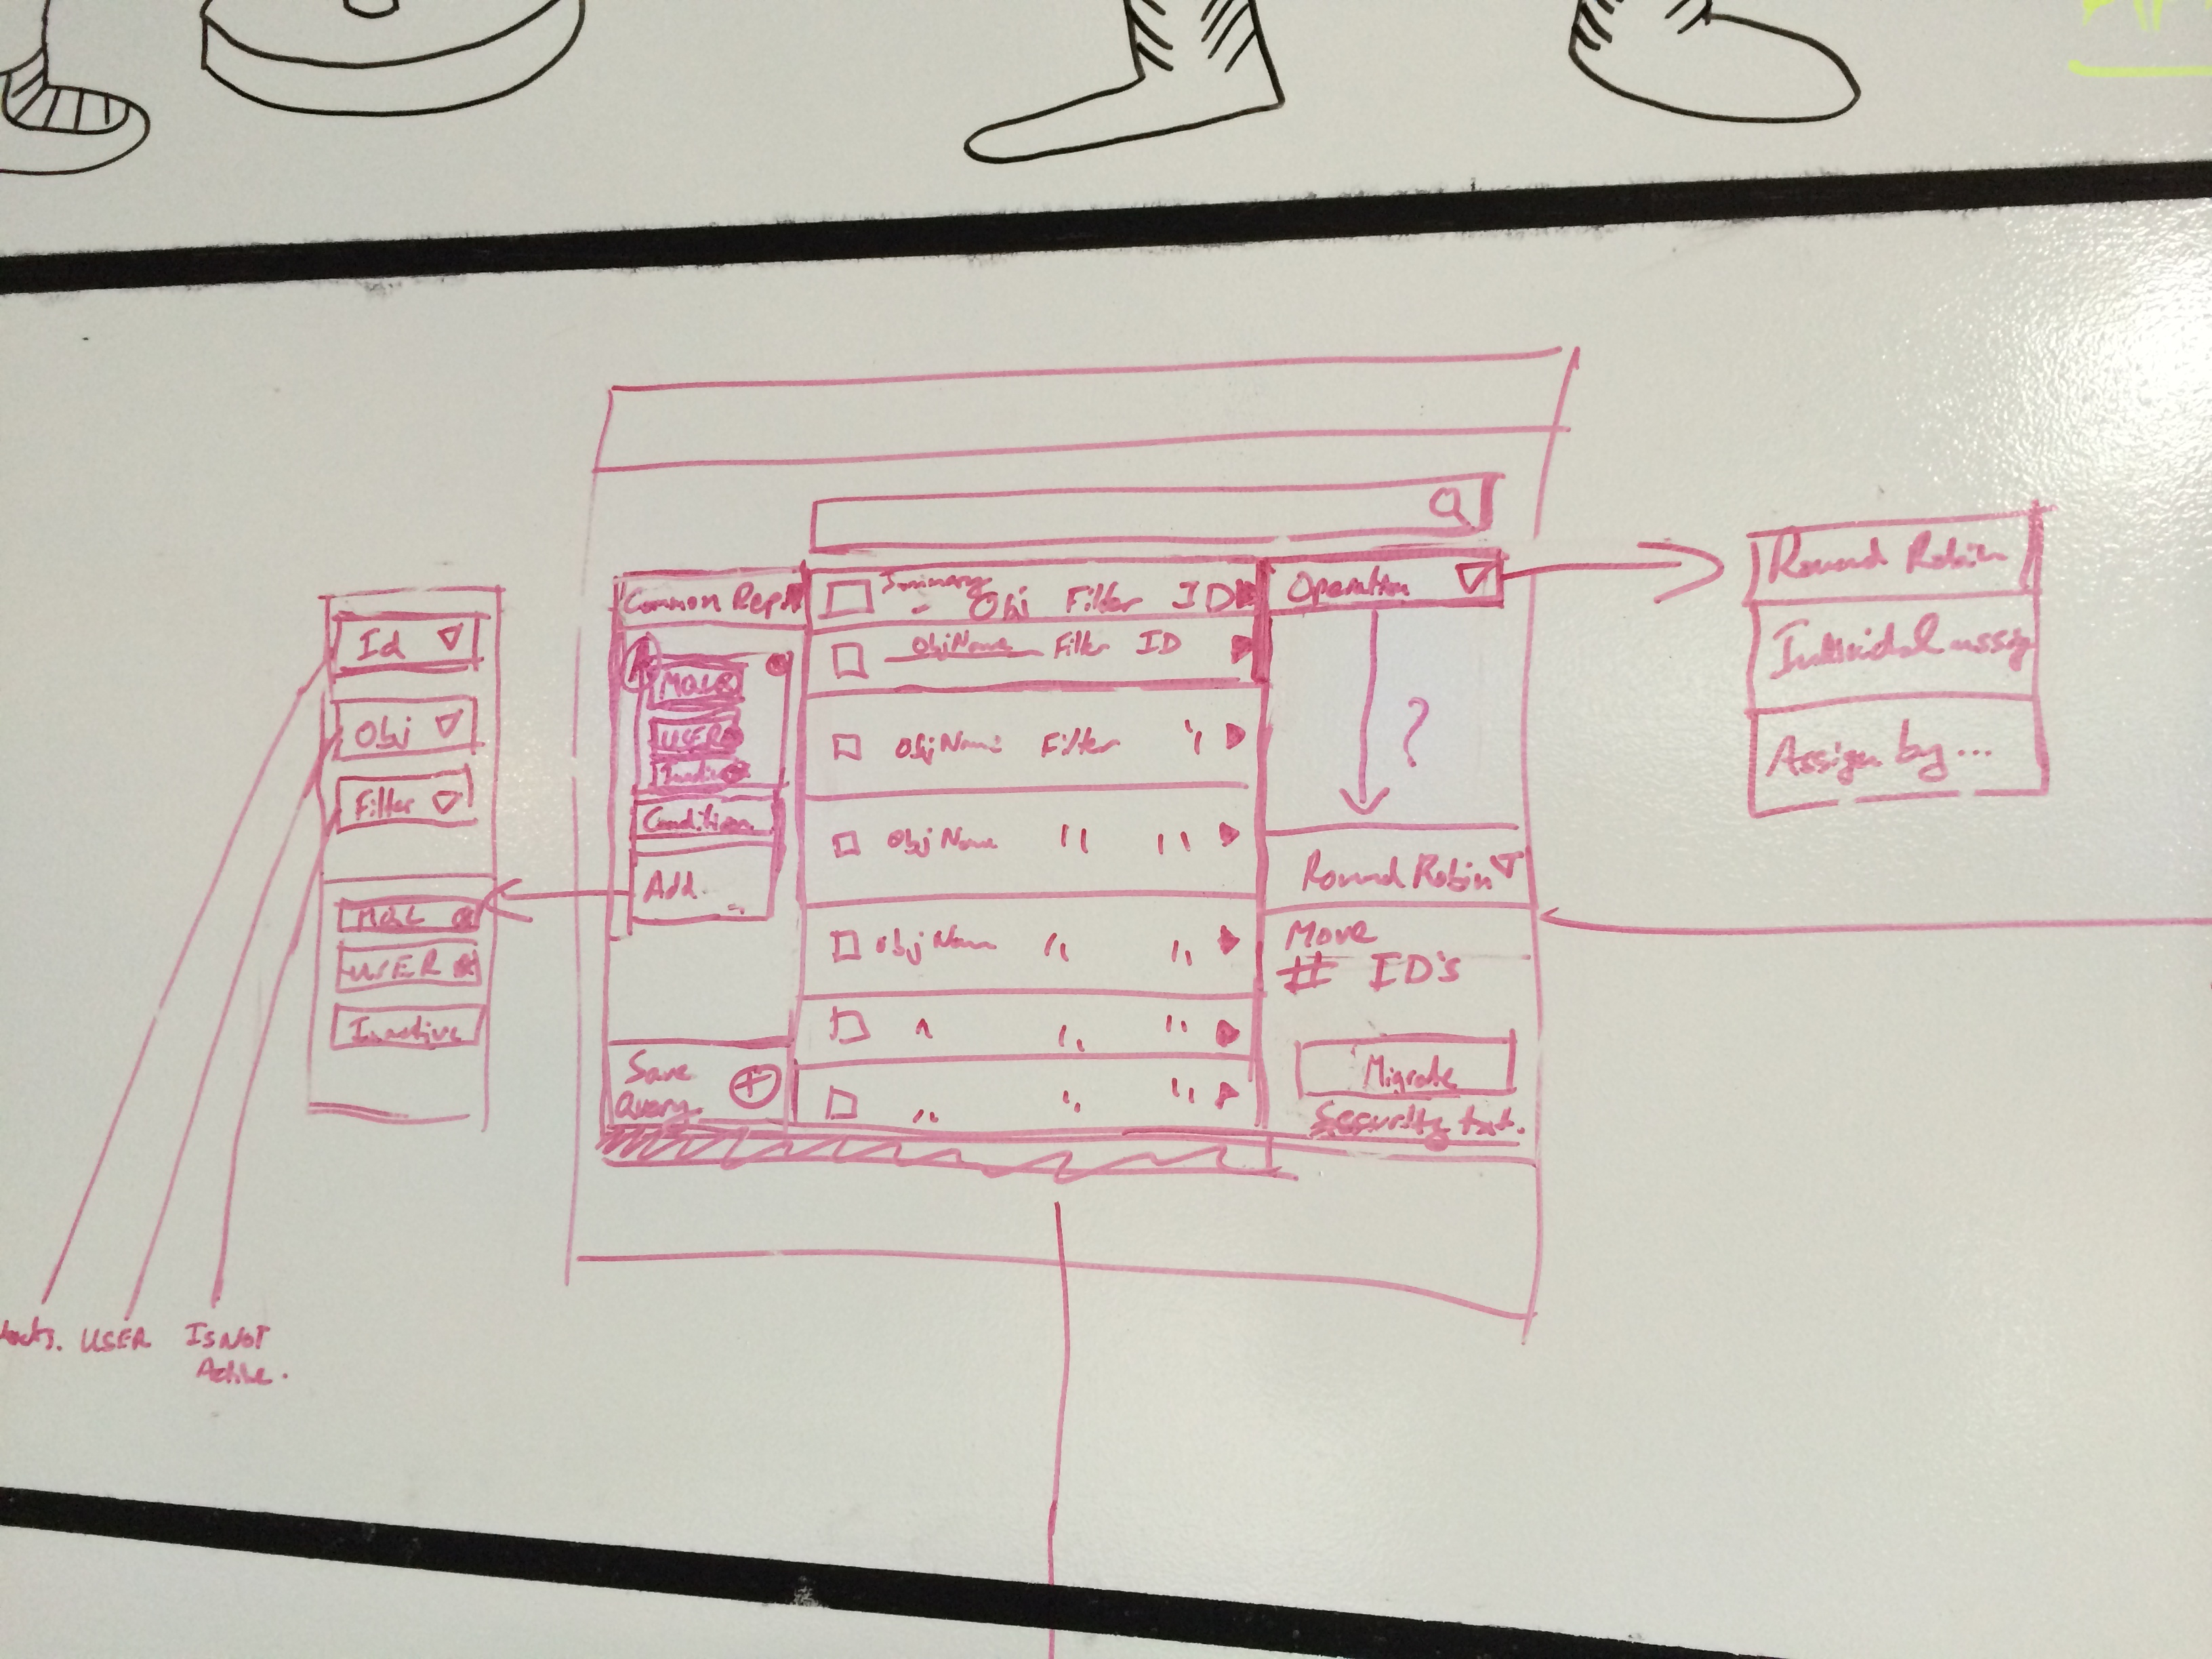 Id
Obj
Filter
MQL
USER
Inactive
USER
IsNot
Active.
Common Rep
MQL
USER
Condition
Add
Save
Query
Summary
Obj Filter ID
ObjName Filter ID
ObjName Filter "
ObjName " "
ObjName " "
" " "
" " "
Operation
?
Round Robin
Move
# ID's
Migrate
Security txt.
Round Robin
Individal assig
Assign by...